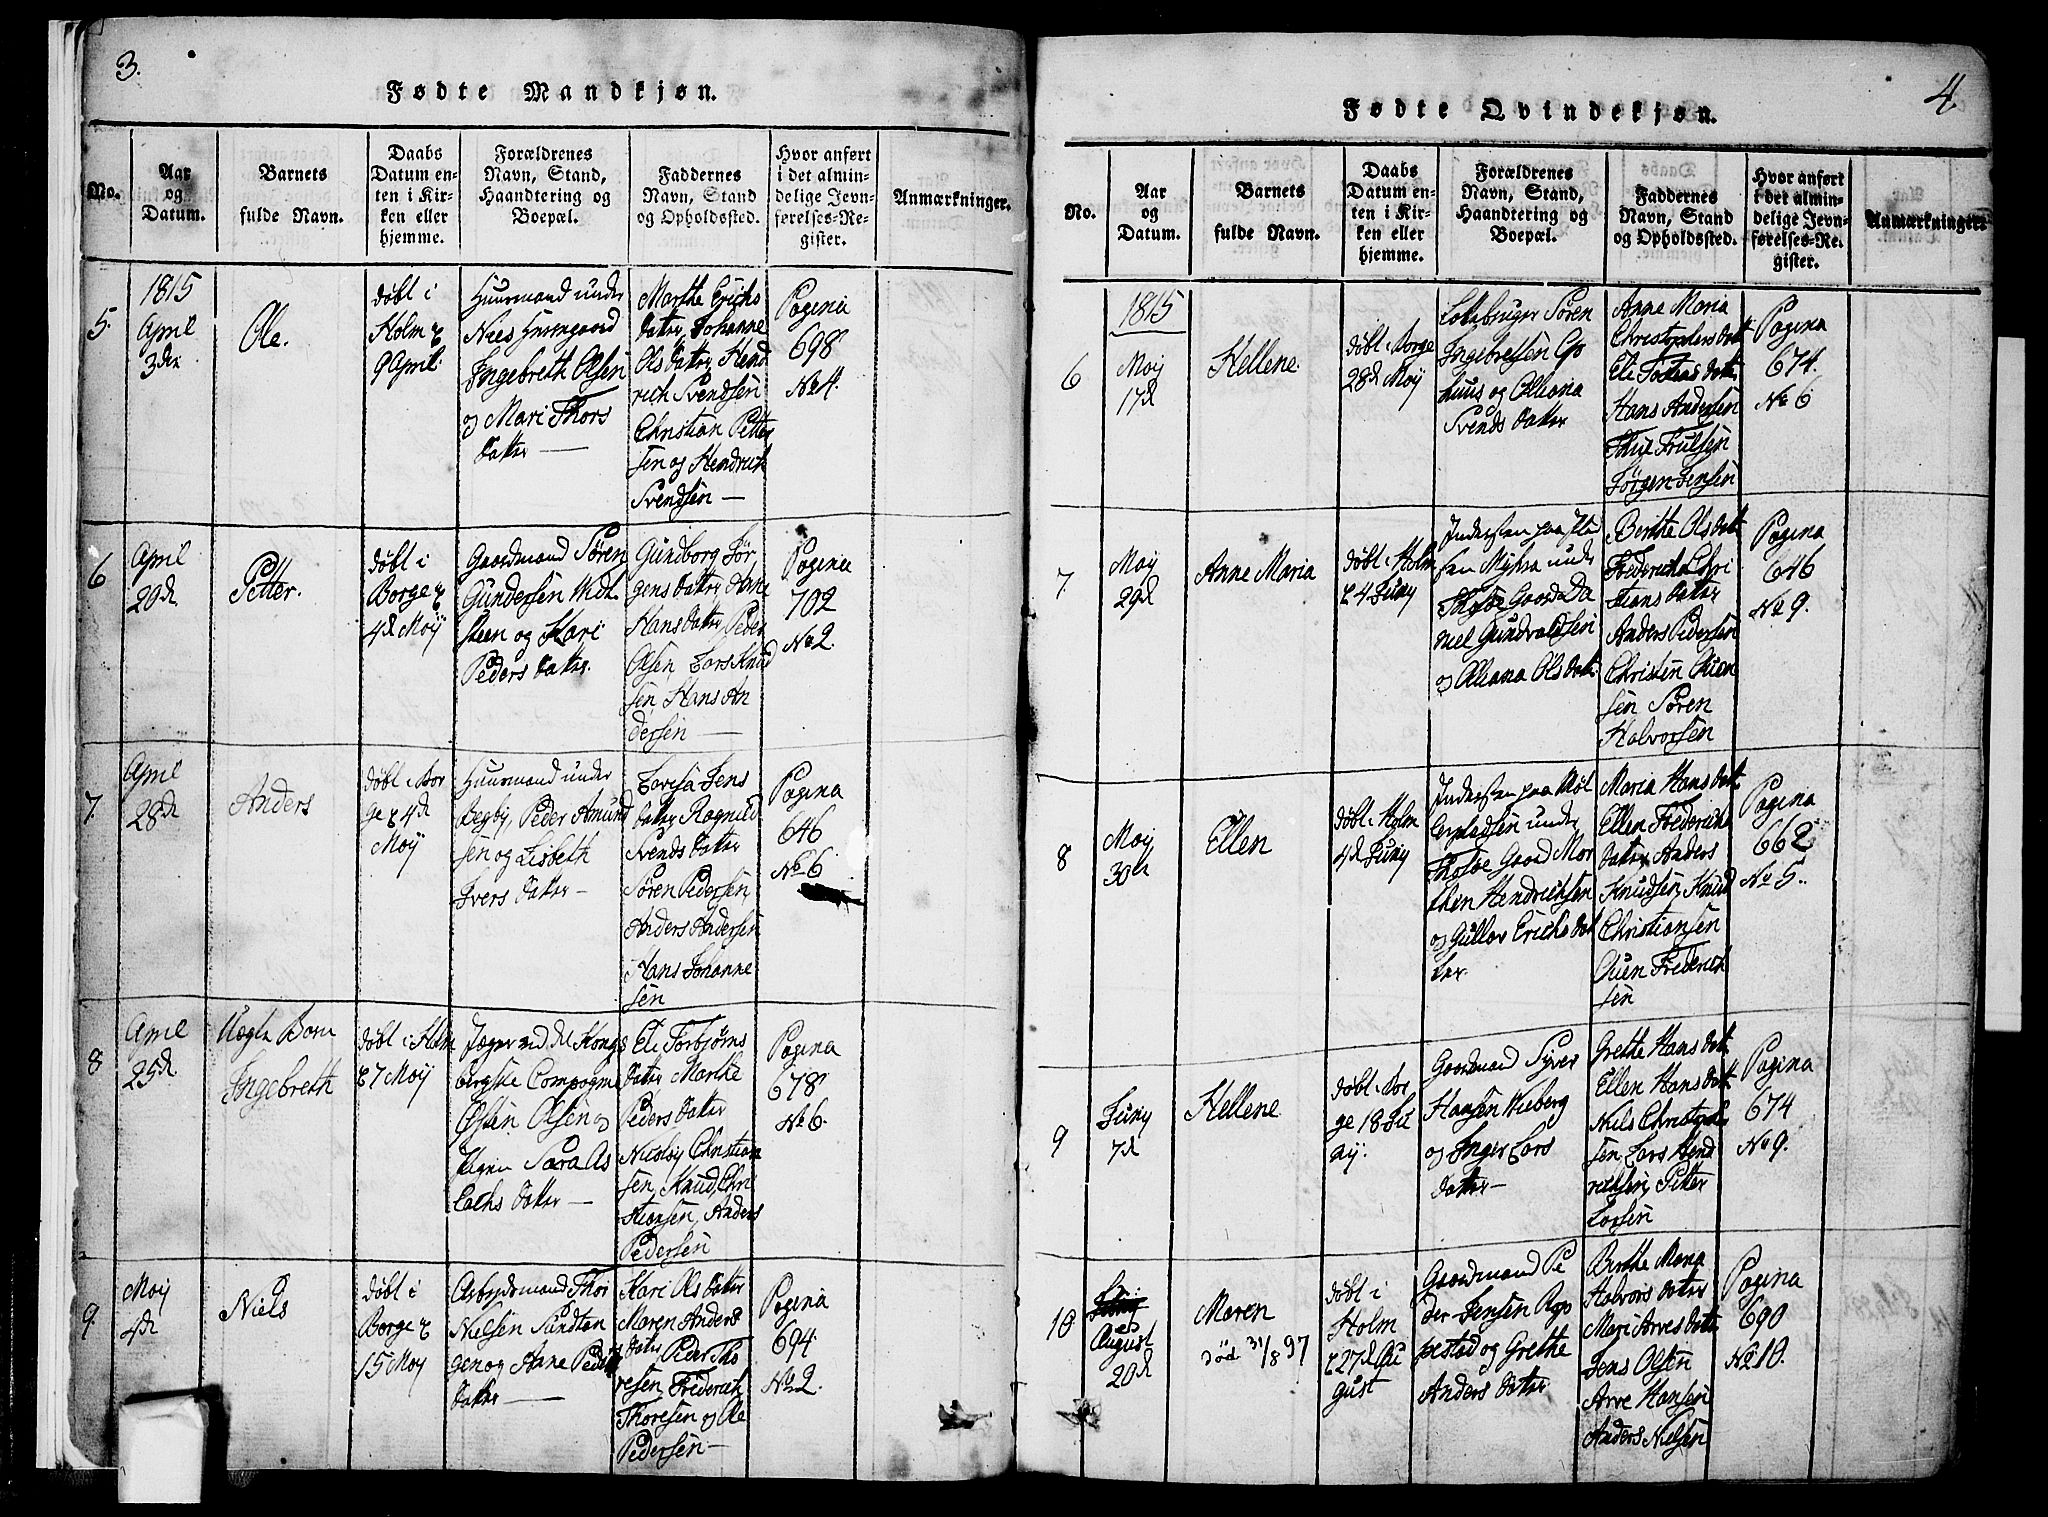 3.
Fødte Mandkjøn.
No.
Aar
og
Datum.
Barnets
fulde Navn.
Daabs
Datum en-
ten i Kir-
ken eller
hjemme.
Forældrenes
Navn, Stand,
Haandtering og
Boepæl.
Faddernes
Navn, Stand
og Opholdssted.
Hvor anført
i det almin-
delige Jevn-
førelses-Re-
gister.
Anmærkninger.
5.
1815
April
3de
Ole.
døbt i
Holm
9 April.
Huusmand under
Nies
Ingebreth Olsen
og Mari Thors
datter
Marthe Erichs
datter, Johanne
Ols datter, Hend
rich Svendsen
Christian Petter
sen og Hendrich
Svendsen
Pagina
698
No 4.
6
April
20de
Petter.
døbt i
Borge
4de Maij
Gaardmand Sören
Gundersen
og Kari
Peders datter.
Gundborg Jør
gens datter, Anne
Hans datter, Peder
Olsen, Lars Knud
sen, Hans An
dersen
Pagina
702
No 2.
7.
April
28de
Anders
døbt i Bor
ge 4de
Maij
Huusmand under
Begby, Peder Amund
sen og Lisbeth
Ivers datter
Lovisa Jens
datter Ragnild
Svends datter
Sören Pedersen,
Anders Andersen
Hans Johanne
sen
Pagina
646
No 6
8
April
25de
Uægte Barn
Ingebreth
døbt i Holm
7 Maij
Jæger ved det Kongs
bergske Compagnie
Østen Olsen og
Pigen Sara As
lachs datter
Eli Torbjørns
datter Marthe
Peders datter
Nicolay Christian
sen, Knud Chri
stiansen, Anders
Pedersen
Pagina
678
No 6.
9.
Maij
4de
Niels
døbt i
Borge
15 Maij
Arbeydsmand Thor
Nielsen
og Anne Peders
datter
Kari Ols datter
Maren Anders
datter, Peder Tho
resen, Frederich
Thoresen og Ole
Pedersen
Pagina
694.
No 2.
4.
Fødte Qvindekjøn.
No.
Aar
og
Datum.
Barnets
fulde Navn.
Daabs
Datum en-
ten i Kir-
ken eller
hjemme.
Forældrenes
Navn, Stand,
Haandtering og
Boepæl.
Faddernes
Navn, Stand
og Opholdssted.
Hvor anført
i det almin-
delige Jevn-
førelses-Re-
gister.
Anmærkninger.
6
1815
Maij
17de
Hellene.
døbt i Borge
28de Maij
Sören
Ingebretsen
huus og Olleana
Svends datter
Anne Maria
Christophers datt
Eli datt.
Hans Andersen
Jørgen Jensen
Pagina
674.
No 6
7.
Maij
29de
Anne Maria
døbt i Holm
4 Juny
Myhra under
Thosøe Gaard Da
niel Gundvaldsen
og Olleana Ols datt.
Berthe Ols datt
Fredericha Chri
stians datter
Anders Pedersen
Christen
sen Sören
Halvorsen
Pagina
646
No 9.
8
Maij
30de
Ellen
døbt i Holm
4de Juny
under
Thosøe Gaard Mor
then Hendrichsen
og Gullov Erichs dat
ter.
Maria Hans datt
Ellen Frederichs
datter, Anders
Knudsen, Knud
Christiansen
Frederich
sen
Pagina
662
No 5.
9
Juny
7de
Hellene
døbt i Bor
ge 18 Ju
nij.
Gaardmand Syver
Hansen Wieberg
og Inger Lars
datter
Grethe Hans datt.
Ellen Hans datt.
Niels Christoph
sen Lars Hend
richsen, Petter
Larsen
Pagina
674
No 9.
10
August
20de
Maren
død 31/8 97
døbt i
Holm
27de Au
gust
Gaardmand Pe
der Jensen Rop
pestad og Grethe
Anders datter
Birthe Maria
Halvors datter
Mari Arves datter
Jens Olsen
Arve Hansen
Anders Nielsen
Pagina
690
No 10.